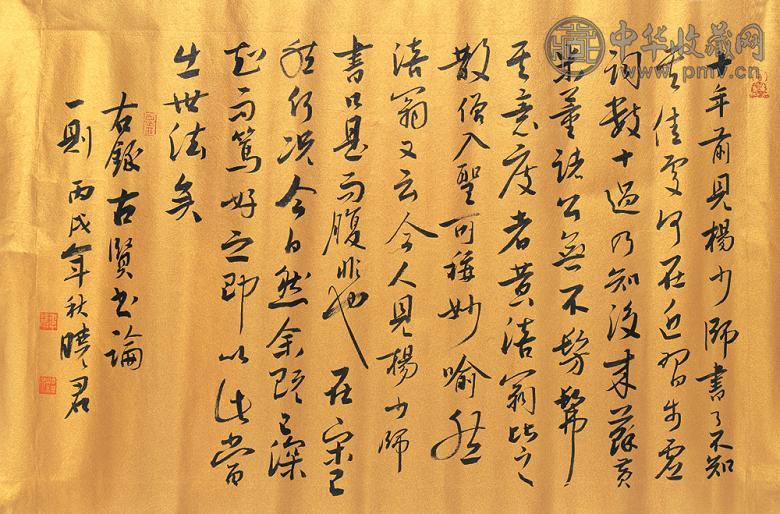 十年前見楊少師書了不知
其佳處何在近習步虛
詞數十過乃知後來蘇黃
米董諸公無不髣髴
其意度者黃涪翁比之
散僧入聖可稱妙喻然
涪翁又云今人見楊少師
書口是而腹非也在宋已
然何況今日然余既已深
知而篤好之即以此當
出世法矣
右錄古賢書論
一則 丙戌年秋曉君
中华收藏网
www.pmv.cn